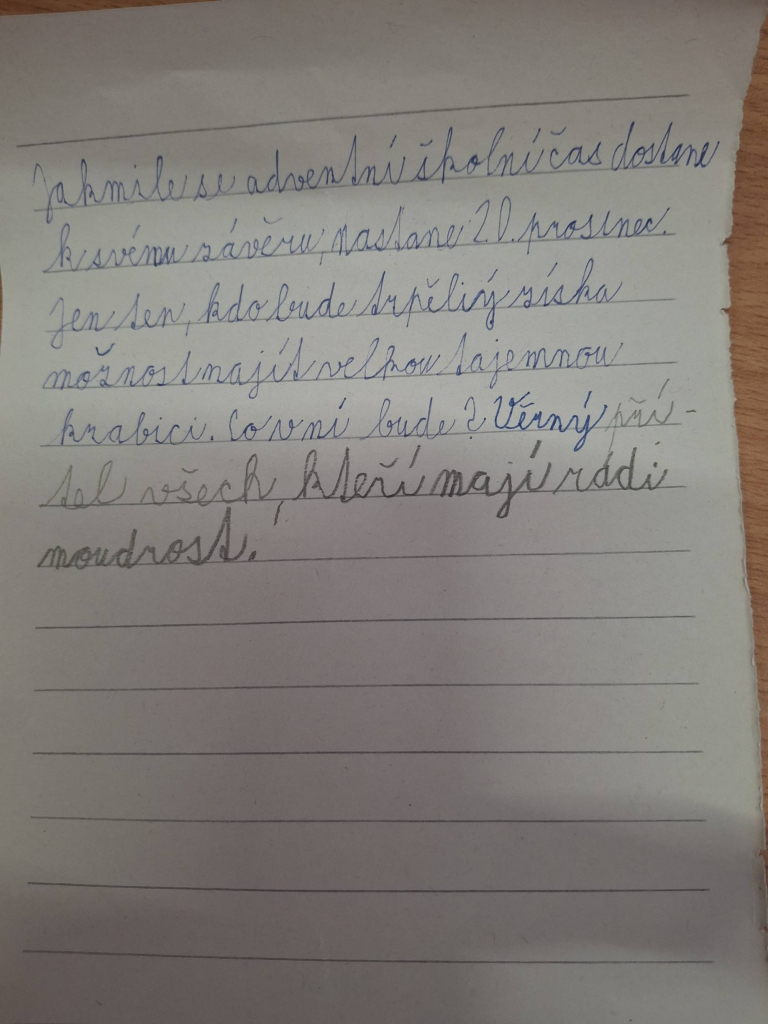 Jakmile se adventní školní čas dostane
k svému závěru, nastane 20. prosinec.
Jen ten, kdo bude trpělivý získa
možnost najít velkou tajemnou
krabici. Co v ní bude? Věrný pří-
tel všech, kteří mají rádi
moudrost.